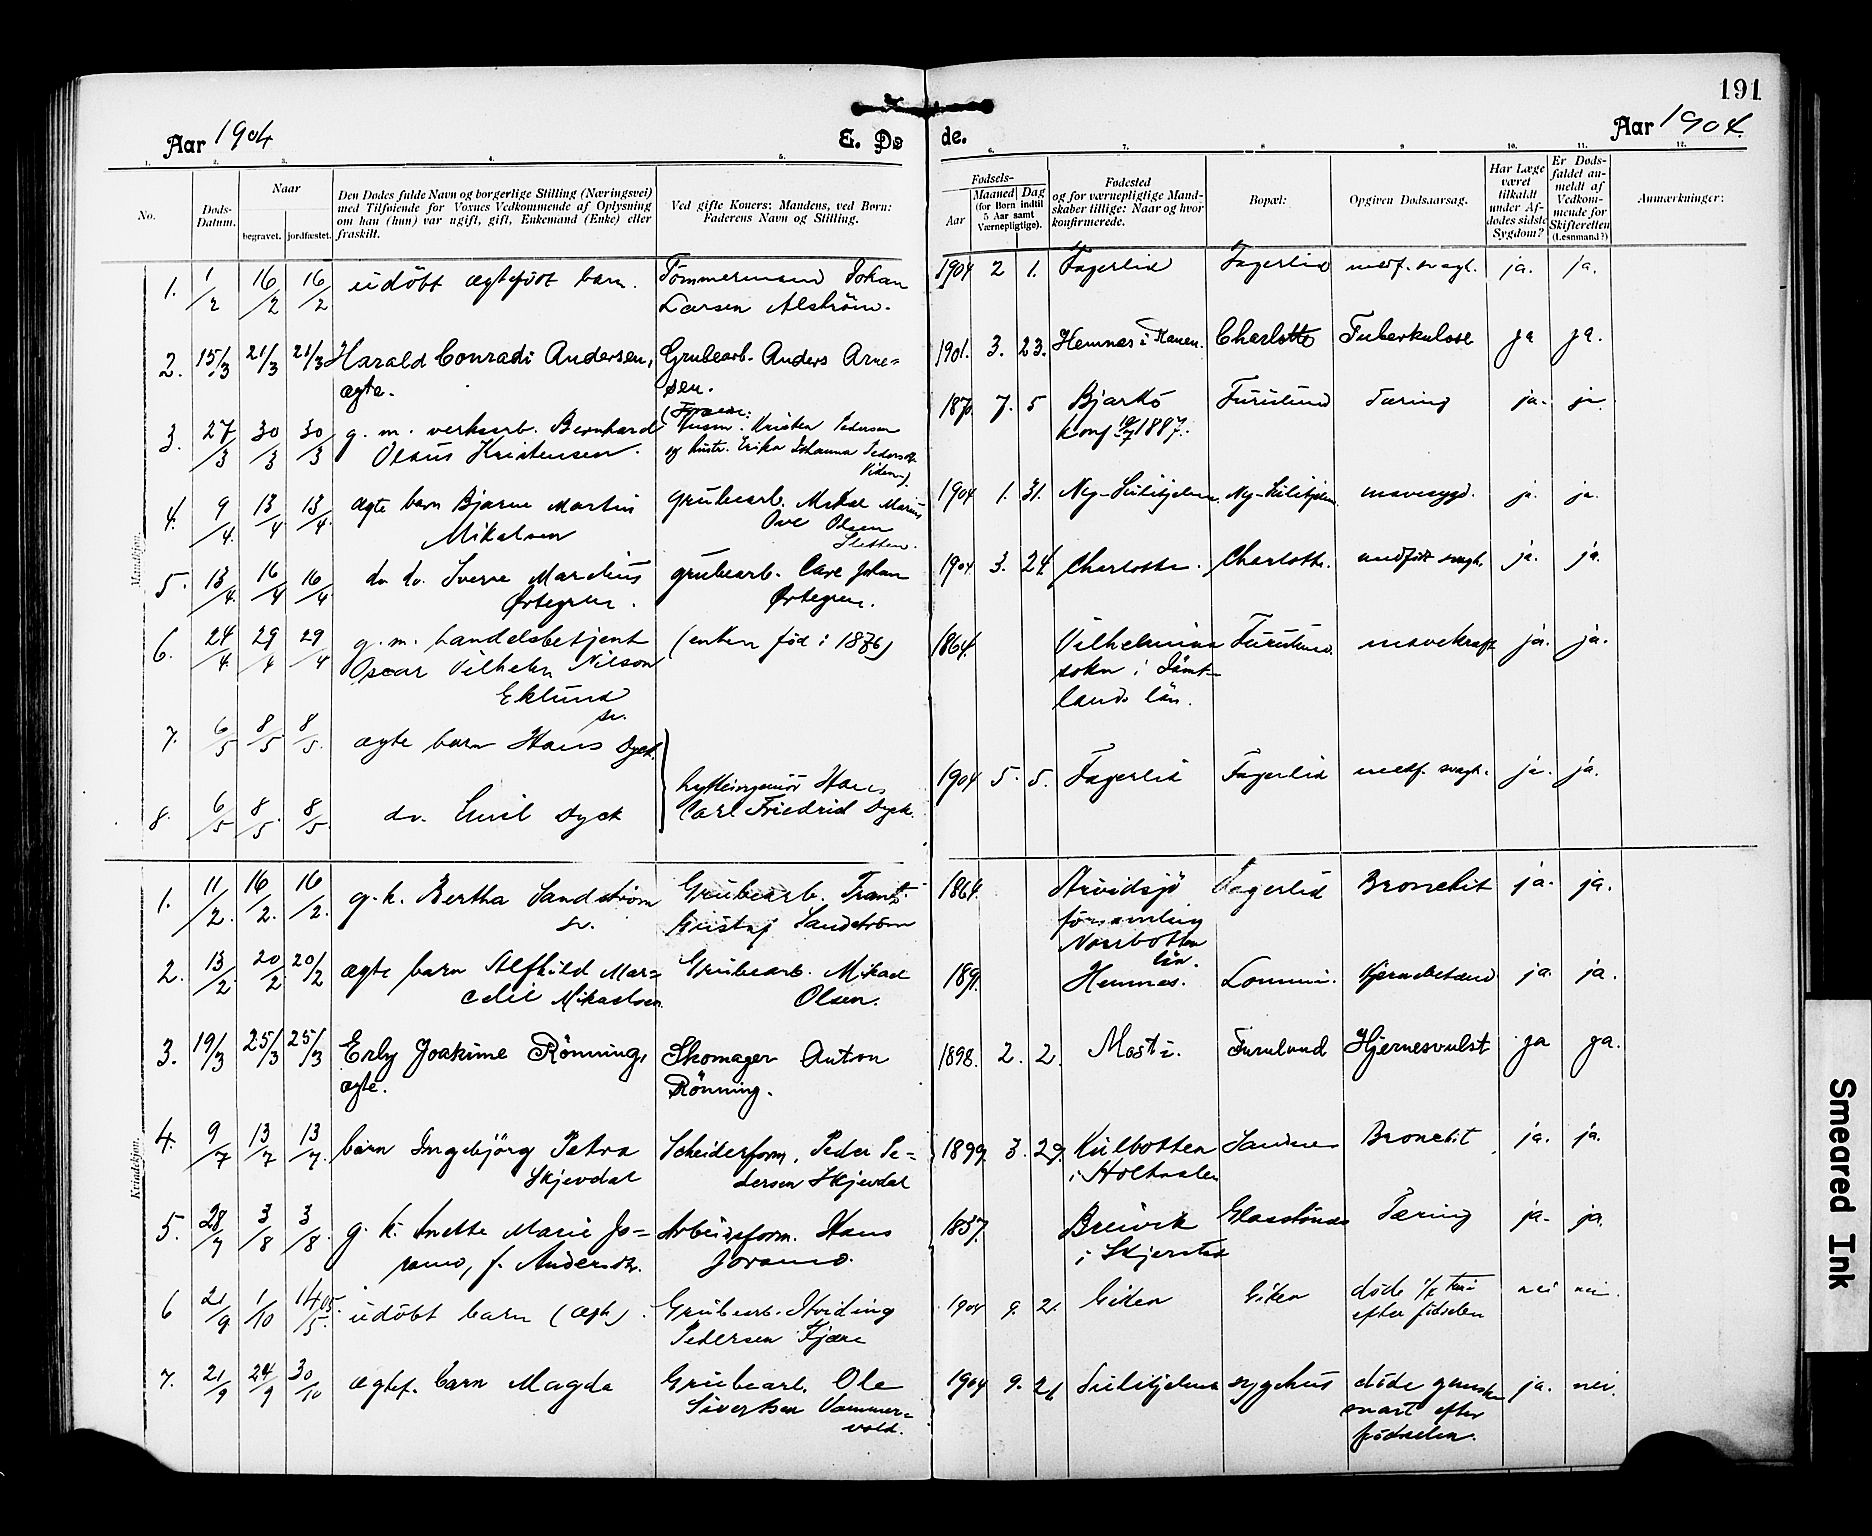 191
Aar 1904
E. Dø
de.
Aar 1904.
1. 2. 3. 4. 5. 6. 7. 8 9 10. 11. 12.
No.
Døds-
Datum.
Naar
begravet. jordfæstet.
Den Dødes fulde Navn og borgerlige Stilling (Næringsvei)
med Tilføiende for Voxnes Vedkommende af Oplysning
om han (hun) var ugift, gift, Enkemand (Enke) eller
fraskilt.
Ved gifte Koners: Mandens, ved Børn:
Faderens Navn og Stilling.
Fødsels-
Aar
Maaned Dag
(for Børn indtil
5 Aar samt
Værnepligtige).
Fødested
og for værnepligtige Mand-
skaber tillige: Naar og hvor
konfirmerede.
Bopæl:
Opgiven Dødsaarsag.
Har Læge
været
tilkaldt
under Af-
dødes sidste
Sygdom?
Er Døds-
faldet an-
meldt af
Vedkom-
mende for
Skifteretten
(Lensmand?)
Anmærkninger:
Mandkjøn.
1. 1/2 16/2 16/2 udöbt ægtefödt barn. Tömmermand Johan 1904 2 1. Fagerlid Fagerlid medf. svagh. ja. ja.
Larsen Alström.
2. 15/3 21/3 21/3 Harald Conradi Andersen, Grubearb. Anders Arne= 1901. 3. 23. Hemnes i Ranen. Charlotte Tuberkulose ja ja.
ægte. sen.
3. 27/3 30/3 30/3 g. m. verksarb. Bernhard Kristen Pedersen 1870 7. 5 Bjarkö Furulund Tæring ja. ja.
Olaus Kristensen. og hustr. Erika Johanna Pedersdr. konf 1887.
4. 9/4. 13/4 13/4. ægte barn Bjarne Martin grubearb. Mikal Marius 1904 1. 31. Ny-Sulitjelma. Ny-Sulitjelma mavesygd. ja. ja.
Mikalsen Ove Olsen
Sletten.
5. 13/4. 16/4 16/4 do. do. Sverre Marelius grubearb. Carl Johan 1904 3. 24 Charlotte. Charlotte. medfödt svagh. ja. ja.
Örtegren. Örtegren.
6. 24/4. 29/4 29/4 g. m. handelsbetjent (enken föd i 1876) 1864. Vilhelmina Furulund. mavekræft ja. ja.
Oscar Vilhelm Nilson sokn i Jämt-
Eklund lands län.
sv.
7. 6/5 8/5 8/5. ægte barn Hans Dyck.
hytteingeniör Hans 1904 5. 5. Fagerlid Fagerlid medf. svagh. ja. ja.
8. 6/5 8/5 8/5. do. Emil Dyck Carl Friedrich Dyck.
Kvindekjøn.
1. 11/2. 16/2. 16/2. g. k. Bertha Sandström Grubearb. Frants 1864. Arvidsjö Fagerlid Bronchit ja. ja.
sv. Gustaf Sandström församling
Norrbotten
län.
2. 13/2. 20/2 20/2 ægte barn Alfhild Mar= Grubearb. Mikael 1891. Hemnes. Lommi. Hjernebetænd ja. ja.
celie Mikaelsen Olsen.
3. 19/3 25/3 25/3 Erly Joakime Rönning, Skomager Anton 1898. 2. 2. Mo i Furulund Hjernesvulst ja ja.
ægte. Rönning.
4. 9/7 13/7 13/7. barn Ingebjörg Petra Scheiderform. Peder Pe= 1899. 3. 29. Kulbotten Sandnes Bronchit ja. ja.
Skjevdal dersen Skjevdal i Holtaalen
5. 28/7 3/8 3/8. g. k. Anette Marie Jo= Arbeidsform. Hans 1857. Breivik Glasstunes Tæring ja. ja.
ramo, f. Andersdr. Joramo. i Skjerstad
6 21/9 1/10 14/5. 05. udöbt barn (ægte). Grubearb. Hviding 1904 9. 21. Giken Giken döde 1/2 time nei nei.
Pedersen Fjære efter födselen
7. 21/9 24/9 30/10 ægtef. barn Magda Grubearb. Ole 1904 9. 21 Sulitjelma sygehus döde ganske ja. nei.
Sivertsen Vammer= snart efter
vold. födselen.
Smeared Ink